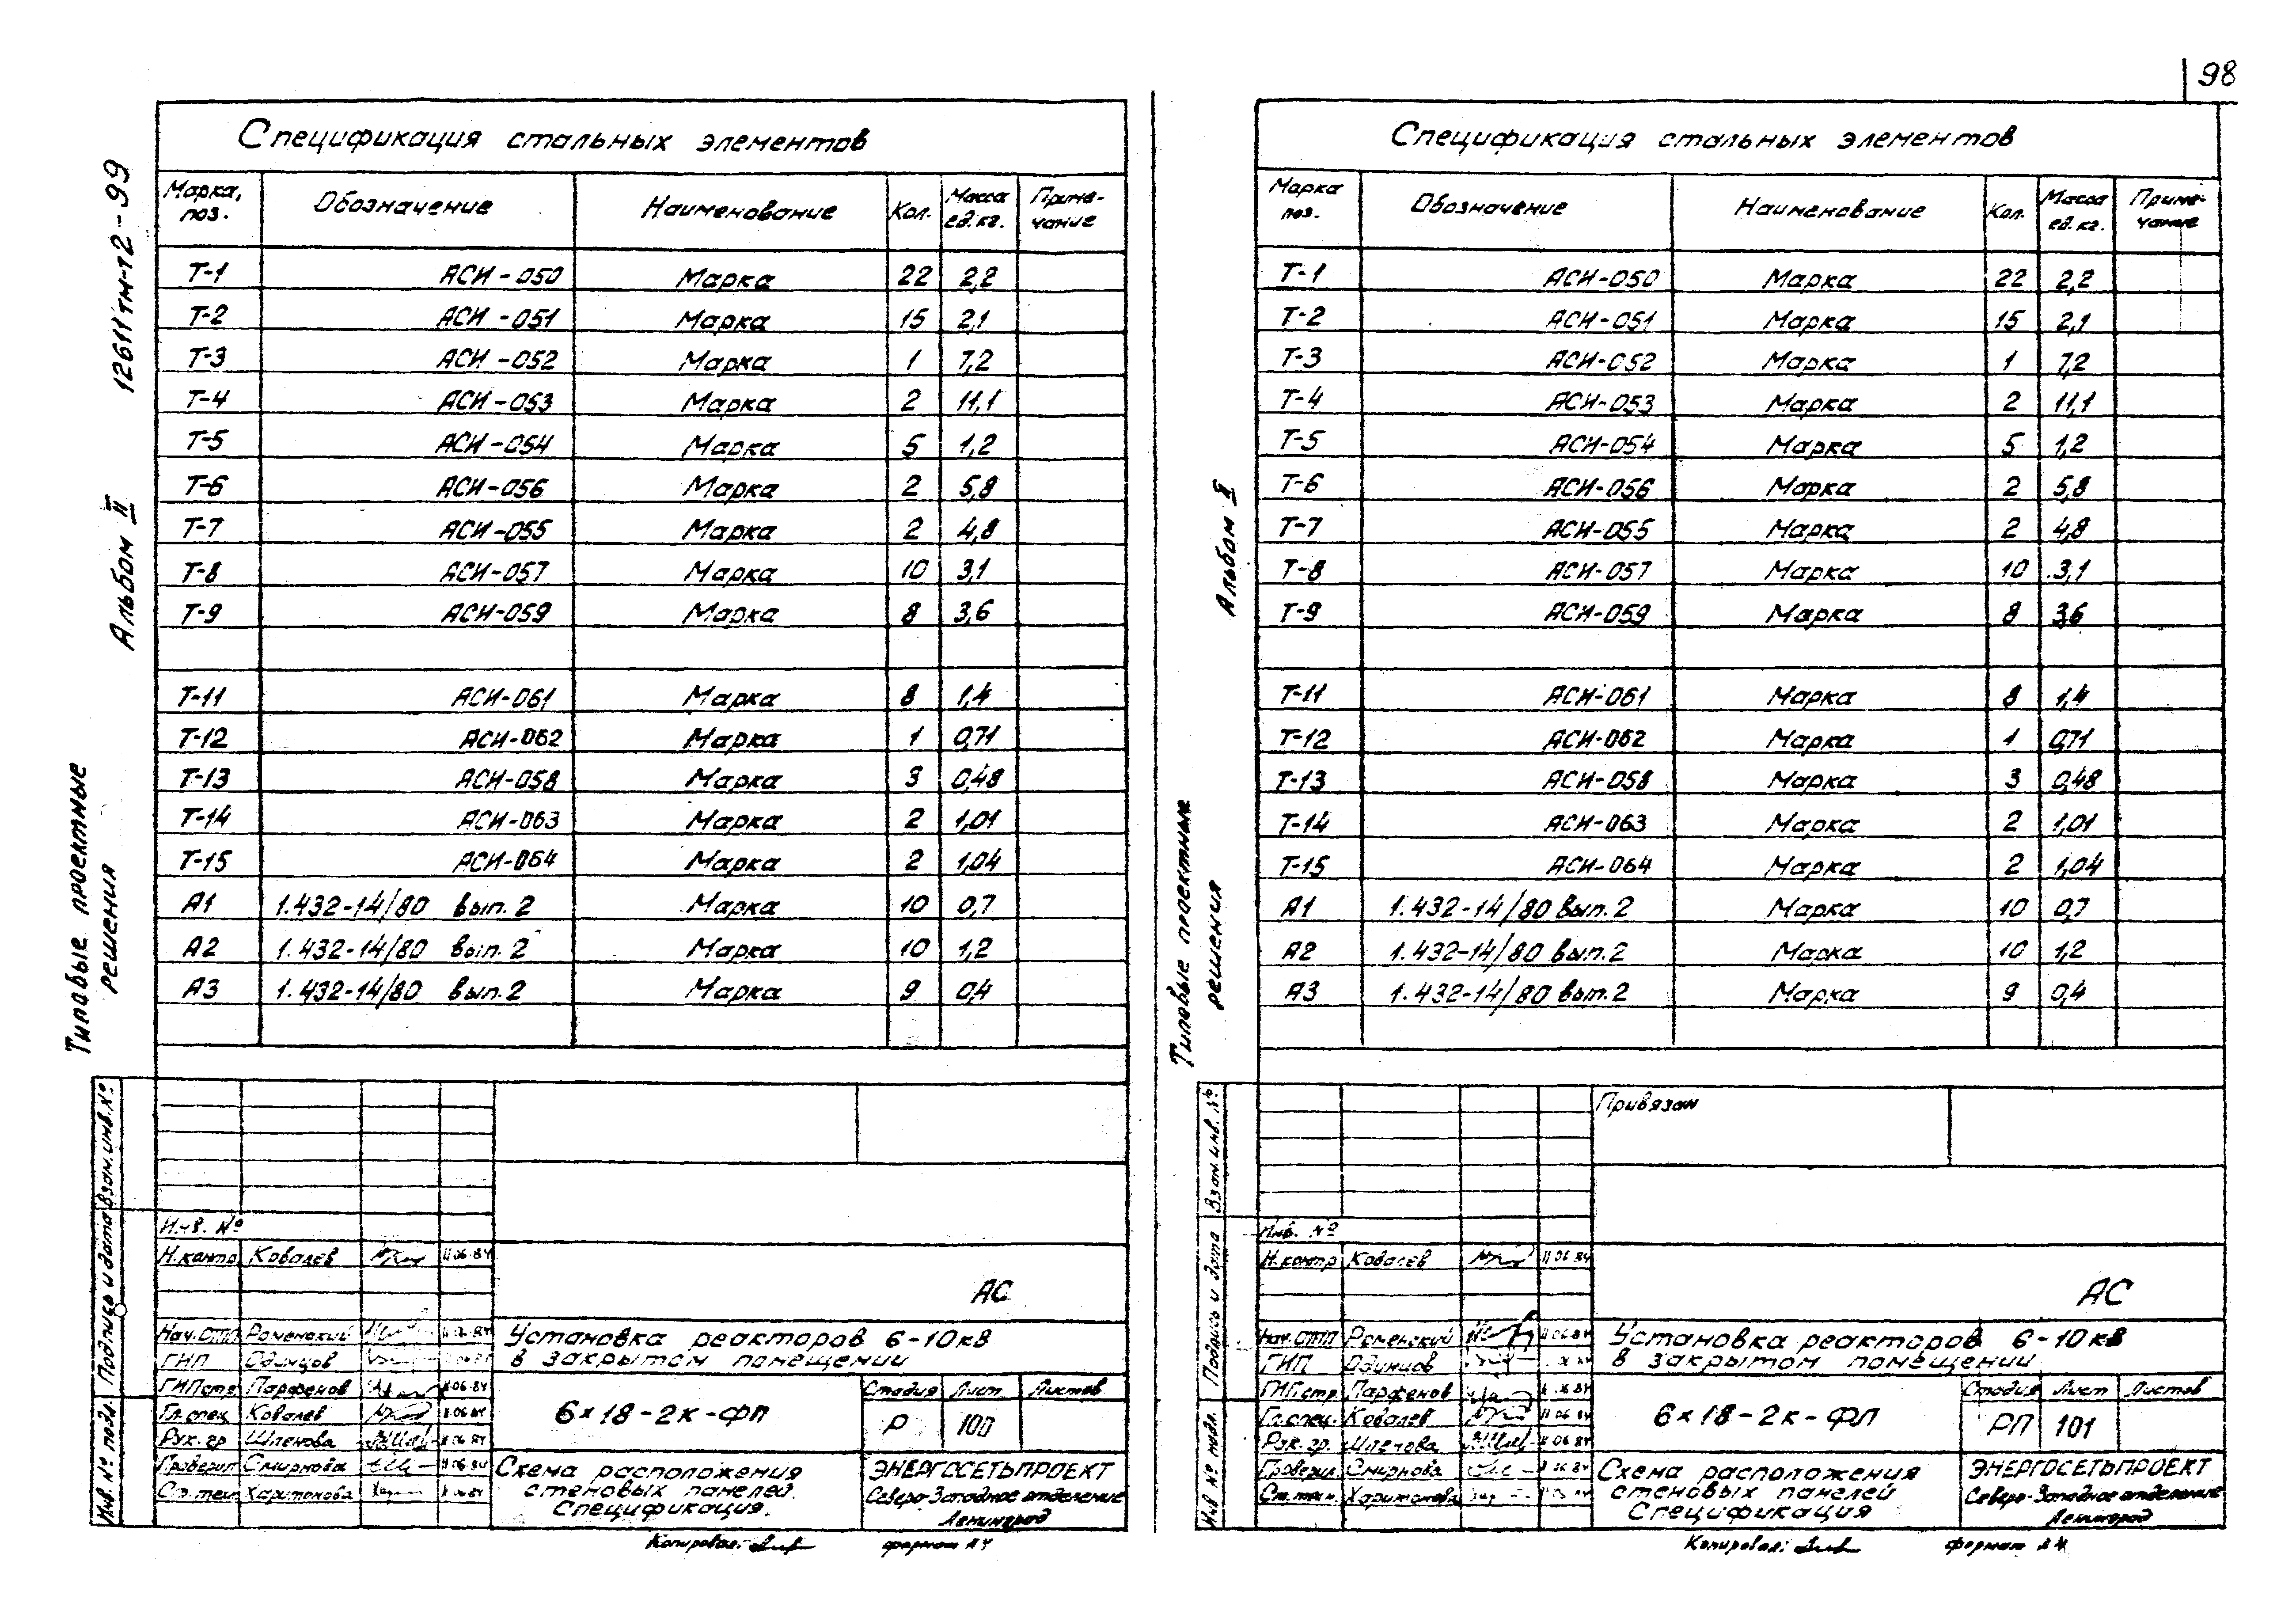 98
12611тм-т2-99
Альбом II
Типовые проектные
решения
Спецификация стальных элементов
Марка, поз. Обозначение Наименование Кол. Масса ед.кг. Примечание
Т-1 АСИ-050 Марка 22 2,2
Т-2 АСИ-051 Марка 15 2,1
Т-3 АСИ-052 Марка 1 7,2
Т-4 АСИ-053 Марка 2 11,1
Т-5 АСИ-054 Марка 5 1,2
Т-6 АСИ-056 Марка 2 5,8
Т-7 АСИ-055 Марка 2 4,8
Т-8 АСИ-057 Марка 10 3,1
Т-9 АСИ-059 Марка 8 3,6
Т-11 АСИ-061 Марка 8 1,4
Т-12 АСИ-062 Марка 1 0,71
Т-13 АСИ-058 Марка 3 0,48
Т-14 АСИ-063 Марка 2 1,01
Т-15 АСИ-064 Марка 2 1,04
А1 1.432-14/80 вып. 2 Марка 10 0,7
А2 1.432-14/80 вып. 2 Марка 10 1,2
А3 1.432-14/80 вып. 2 Марка 9 0,4
Инв. № подл. Подпись и дата Взам.инв.№
Инв. №
Н.контр Ковалев 11 06 84
АС
Нач.ОТП Роменский
ГИП Одинцов
ГИПстр Парфенов 11.06.84
Гл.спец Ковалев 11 06 84
Рук. гр Шленова 11 06 84
Проверил Смирнова 11 06 84
Ст.тех Харитонова
Установка реакторов 6-10кв
в закрытом помещении
6×18-2к-ФП
Стадия Лист Листов
Р 100
Схема расположения
стеновых панелей.
Спецификация.
ЭНЕРГОСЕТЬПРОЕКТ
Северо-Западное отделение
Ленинград
Копировал:
формат А4
Альбом II
Типовые проектные
решения
Спецификация стальных элементов
Марка поз. Обозначение Наименование Кол. Масса ед. кг. Примечание
Т-1 АСИ-050 Марка 22 2,2
Т-2 АСИ-051 Марка 15 2,1
Т-3 АСИ-052 Марка 1 7,2
Т-4 АСИ-053 Марка 2 11,1
Т-5 АСИ-054 Марка 5 1,2
Т-6 АСИ-056 Марка 2 5,8
Т-7 АСИ-055 Марка 2 4,8
Т-8 АСИ-057 Марка 10 3,1
Т-9 АСИ-059 Марка 8 3,6
Т-11 АСИ-061 Марка 8 1,4
Т-12 АСИ-062 Марка 1 0,71
Т-13 АСИ-058 Марка 3 0,48
Т-14 АСИ-063 Марка 2 1,01
Т-15 АСИ-064 Марка 2 1,04
А1 1.432-14/80 вып. 2 Марка 10 0,7
А2 1.432-14/80 вып. 2 Марка 10 1,2
А3 1.432-14/80 вып. 2 Марка 9 0,4
Инв № подл. Подпись и дата Взам.инв. №
Привязан
Инв. №
Н.контр Ковалев 11 06 84
АС
Нач.ОТП Роменский 11 06 84
ГИП Одинцов
ГИПстр. Парфенов
Гл.спец. Ковалев 11 06 84
Рук. гр. Шленова 11 06 84
Проверил Смирнова
Ст.тех. Харитонова
Установка реакторов 6-10кв
в закрытом помещении
6×18-2к-ФП
Стадия Лист Листов
РП 101
Схема расположения
стеновых панелей
Спецификация
ЭНЕРГОСЕТЬПРОЕКТ
Северо-Западное отделение
Ленинград
Копировал:
формат А4